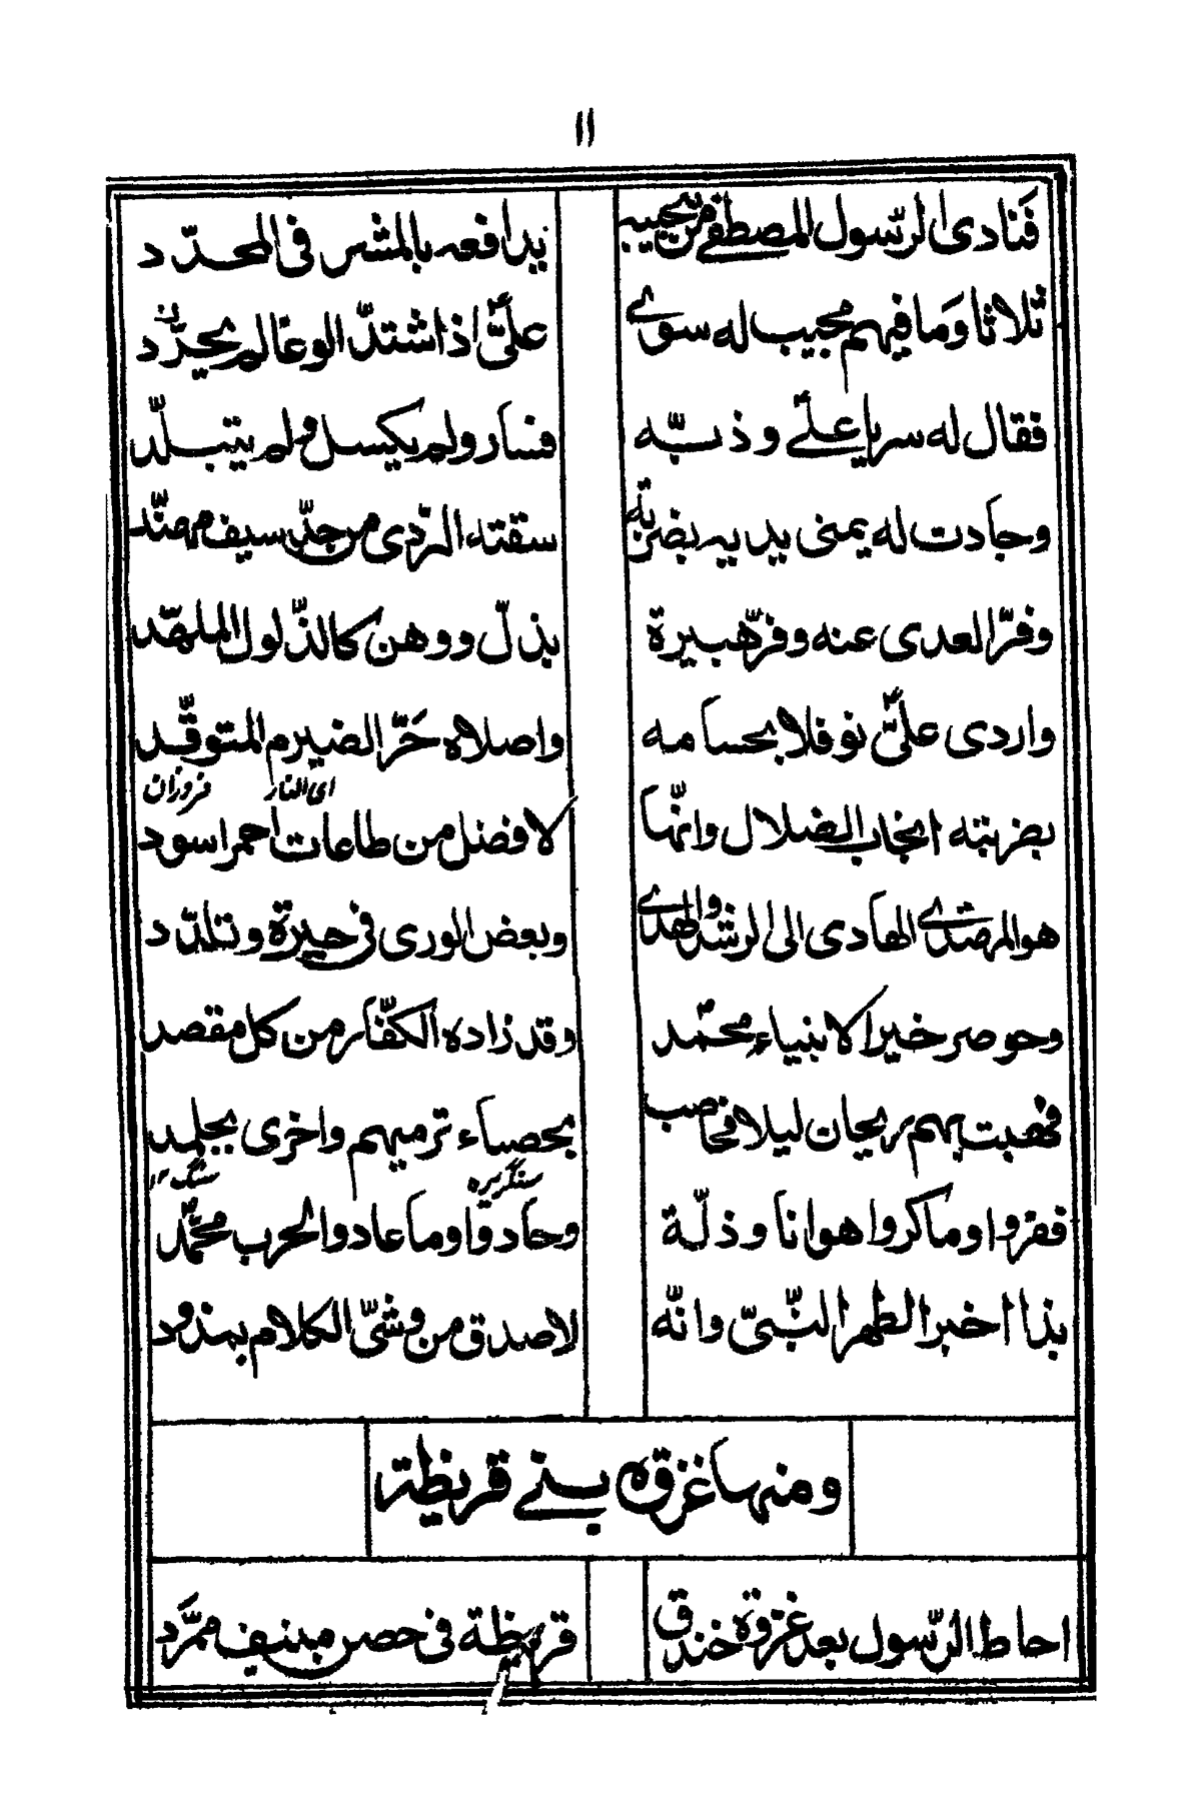 ١١
فَنادى الرّسول المصطفى من يجيبه يدافعه بالمشرفى المحدّد
ثلاثا وَما فيهم مجيب له سوى علىّ اذا اشتدّ الوغا لم يحرّد
فقال له سر يا على وذبّه فسار ولم يكسل ولم يتبلّد
وجادت له يمنى يديه بضربة سقته الرّدى من حدّ سيف مهنّد
وفرّ العدى عنه وفرّ هبيرة بذلّ ووهن كالذّلول الملهّد
واردى علىّ نوفلا بحسامه واصلاه حَرّ الضيرم المتوقّد
اى النار فروزان
بضربته انجاب الضلال وانّها لافضل من طاعات احمر اسود
هو المهتدى الهادى الى الرشد والهدى وبعض الورى فى حيرة وتلدّد
وحوصر خير الانبياء محمّد وقد زاده الكفّار من كل مقصد
فهبت بهم ريحان ليلا فحاصب بحصباء ترميهم واخرى بجلمد
سنگريزه سنگ ١٢
ففروا وما كروا هوانا وذلّة وحادوا وما عادوا لحرب محمّد
بذا اخبر الطهر النّبىّ وانّه لاصدق من وشىّ الكلام بمذود
ومنها غزوة بنى قريظة
احاط الرّسول بعد غزوة خندق قريظة فى حصن منيف ممرَّد